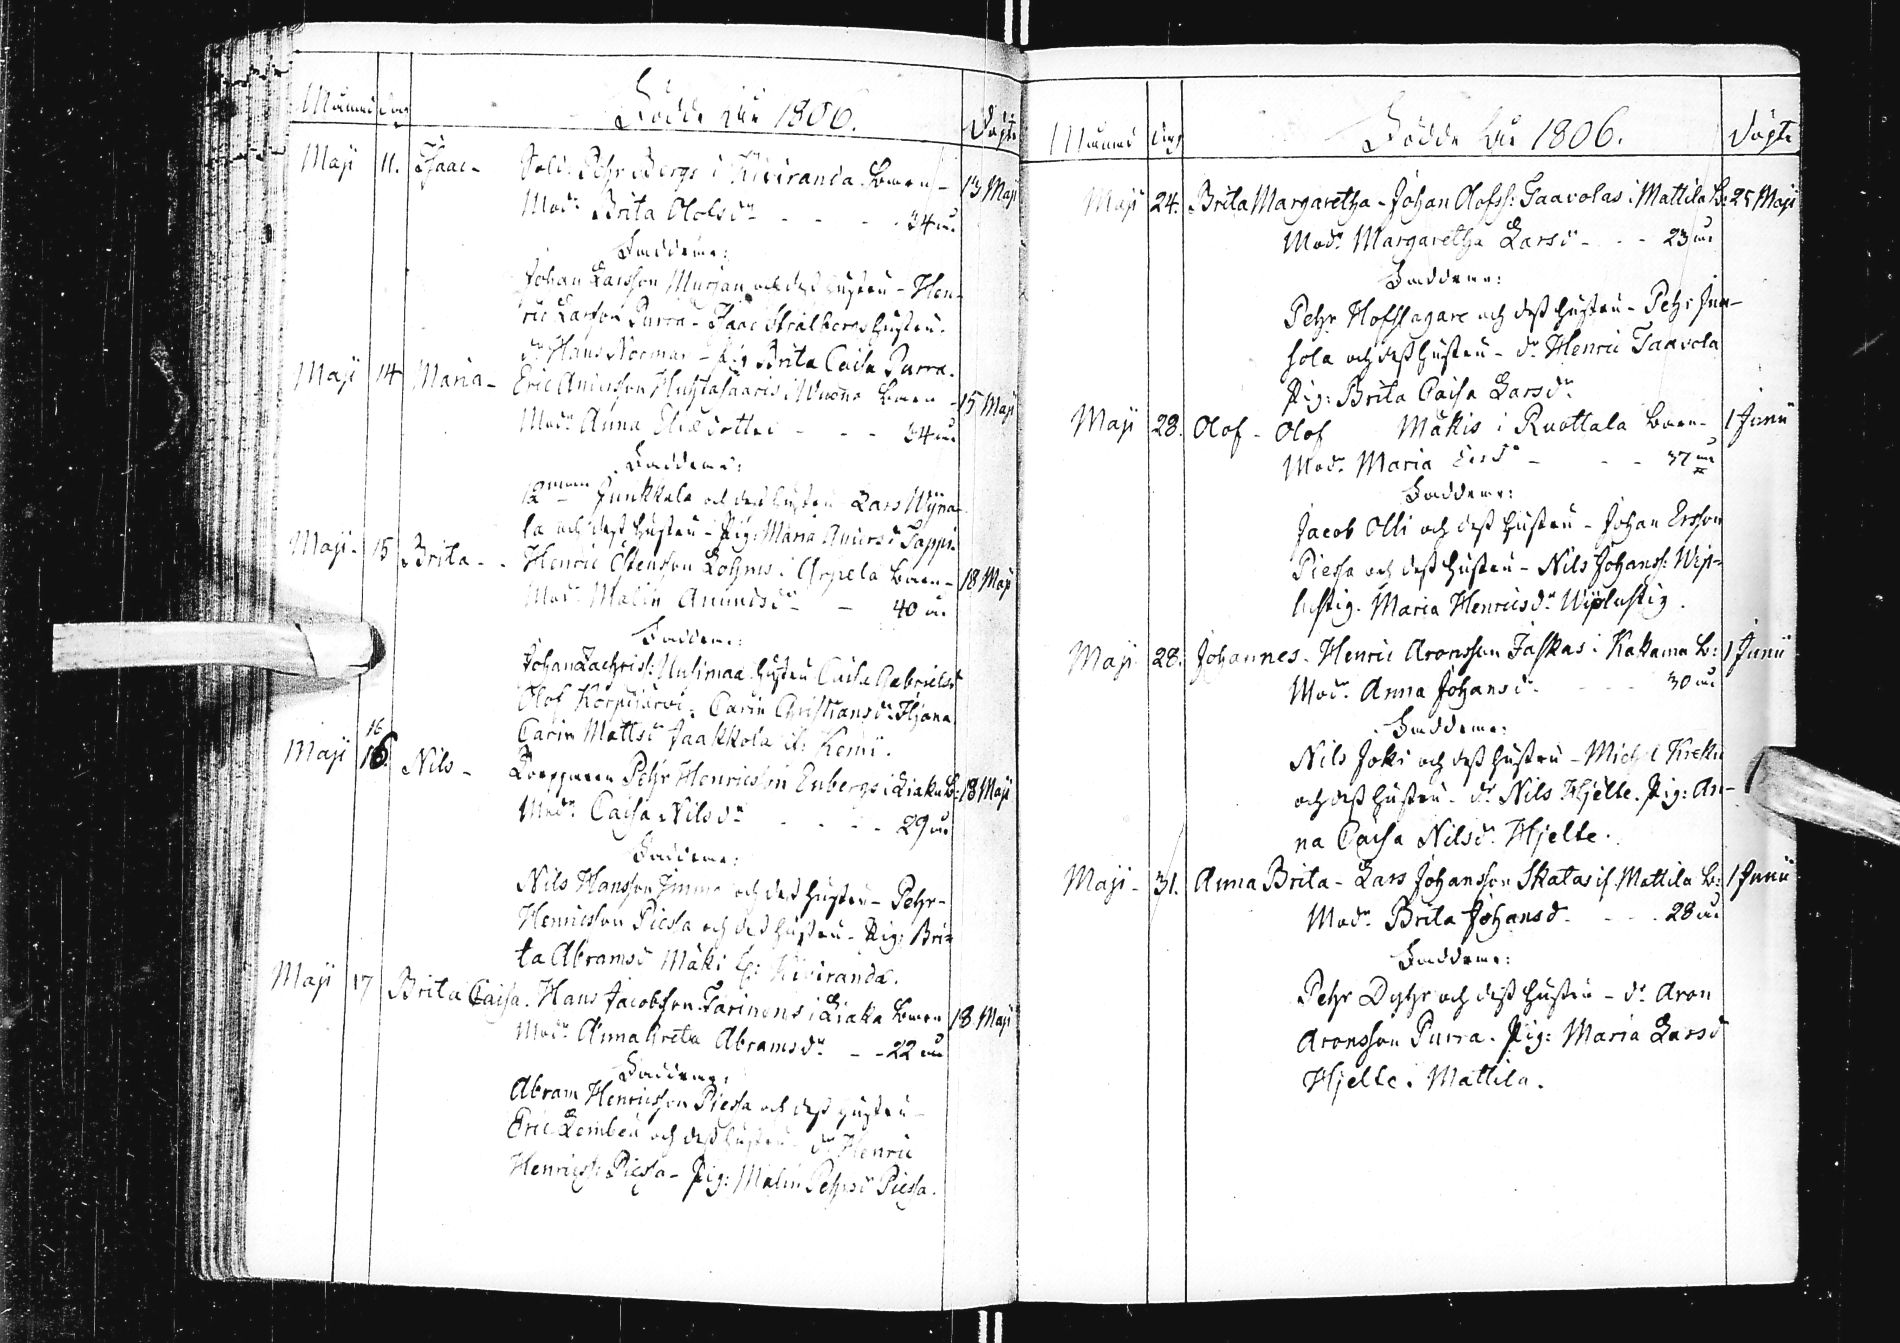 Månad Dag Födde År 1806. Döpte
Maji 11. Isaac - Sold: Pehr Bergs i Kiviranda barn - 13 Maji
Modr Brita Olofsdr - - - 34 år
Faddrar:
Johan Larsson Mursan och dess hustru - Hen-
ric Larsson Purra - Isaac Strålbergs hustru.
dr Hans Norman - Pig Brita Caisa Purra.
Maji 14 Maria - Eric Andersson Huhtasaaris i Wuono barn - 15 Maji
Modr Anna Elisdotter - - - 34 år
Faddrar:
12man Junkkala och dess hustru Lars Wÿna-
la och dess hustru - Pig: Maria Andersdr Tappi.
Maji - 15 Brita - - Henric Stensson Lohms i Arpela barn - 18 Maji
Modr Malin Anundsdr - 40 år
Faddrar:
Johan Zachriss: Uusimaa hustru Caisa Gabrielsd
Olof Korpijärvi. Carin Christiansdr Iljana
Carin Mattsdr Jaakkola i Kemi.
16
Maji 16. Nils - Pehr Henricsson Enbergs i Liaka B: 18 Maji
Modr Caisa Nilsdr - - - 29 år
Faddrar:
Nils Hansson Imma och dess hustru - Pehr-
Henricsson Piessa och dess hustru - Pig: Bri-
ta Abramsd Mäki Kiviranda.
Maji 17 Brita Caisa. Hans Jacobsson Tarinens i Liaka barn 18 Maji
Modr Anna Greta Abramsdr - - 22 år
Faddrar:
Abram Henricsson Piessa och dess hustru -
Eric Kembeu och dess hustru - dr Henric
Henricss: Piessa - Pig: Malin Pehrsdr Piessa.
Månad Dag Födde År 1806. Döpte
Maji 24. Brita Margaretha - Johan Olofss: Taavolas i Mattila B: 25 Maji
Modr Margaretha Larsdr - - - 23 år
Faddrar:
Pehr Hofslagare och dess hustru - Pehr Jun-
sola och dess hustru - dr Henric Taavola
Pig: Brita Caisa Larsdr
Maji 28. Olof - Olof Mäkis i Ruottala barn - 1 Junii
Modr Maria Ersdr - - - 37 år
Faddrar:
Jacob Olli och dess hustru - Johan Ersson
Piessa och dess hustru - Nils Johanss: Wip-
lustig. Maria Henricsdr Wiplustig.
Maji 28. Johannes. Henric Aronsson Jaskas i Kakama B: 1 Junii
Modr Anna Johansdr - - - 30 år
Faddrar:
Nils Joki och dess hustru - Michel Kreku
och dess hustru. dr Nils Hjelte. Pig: An-
na Caisa Nilsdr Hjelte.
Maji - 31. Anna Brita - Lars Johansson Skatas if. Mattila B: 1 Junii
Modr Brita Johansd. - - - 28 år
Faddrar:
Pehr Dyhr och dess hustru - dr Aron
Aronsson Purra. Pig: Maria Larsd
Hjelte i Mattila.